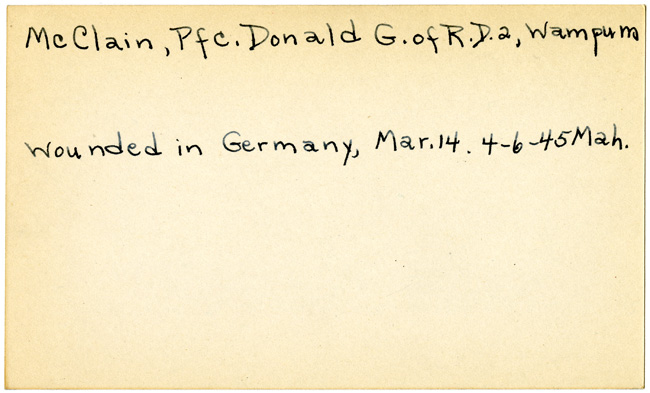 McClain, Pfc. Donald G. of R.D.2, Wampum
Wounded in Germany, Mar. 14. 4-6-45 Mah.